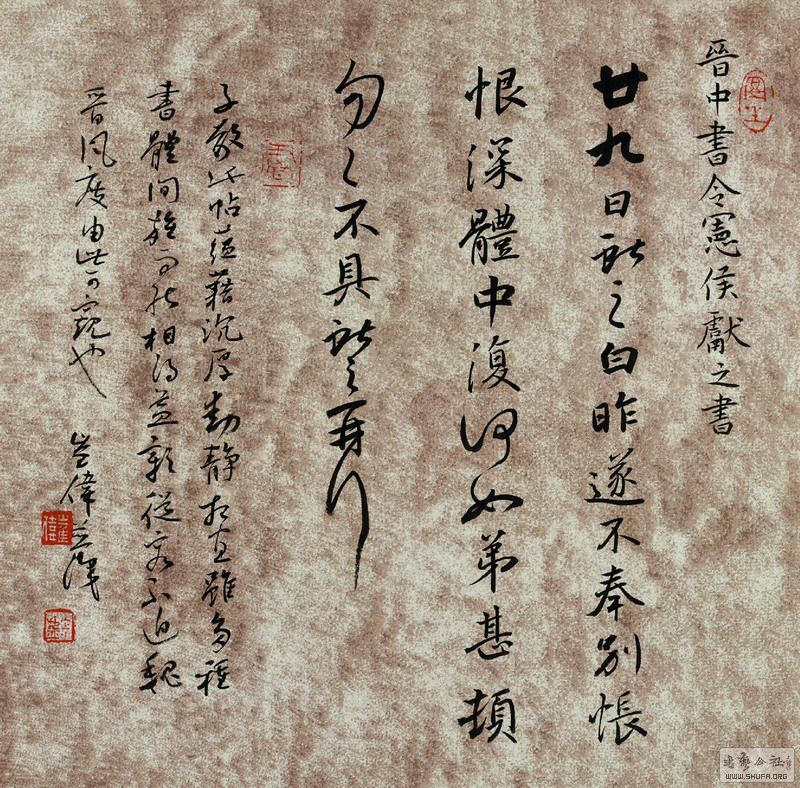 晉中書令憲侯獻之書
廿九日獻之白昨遂不奉別悵
恨深體中復何如弟甚頓
勿〻不具獻之再拜
子敬此帖蘊藉沉厚動靜相宜雖多種
書體間雜而能相得益彰從容不迫魏
晉風度由此可窺也
崔偉並識
WWW.SHUFA.ORG